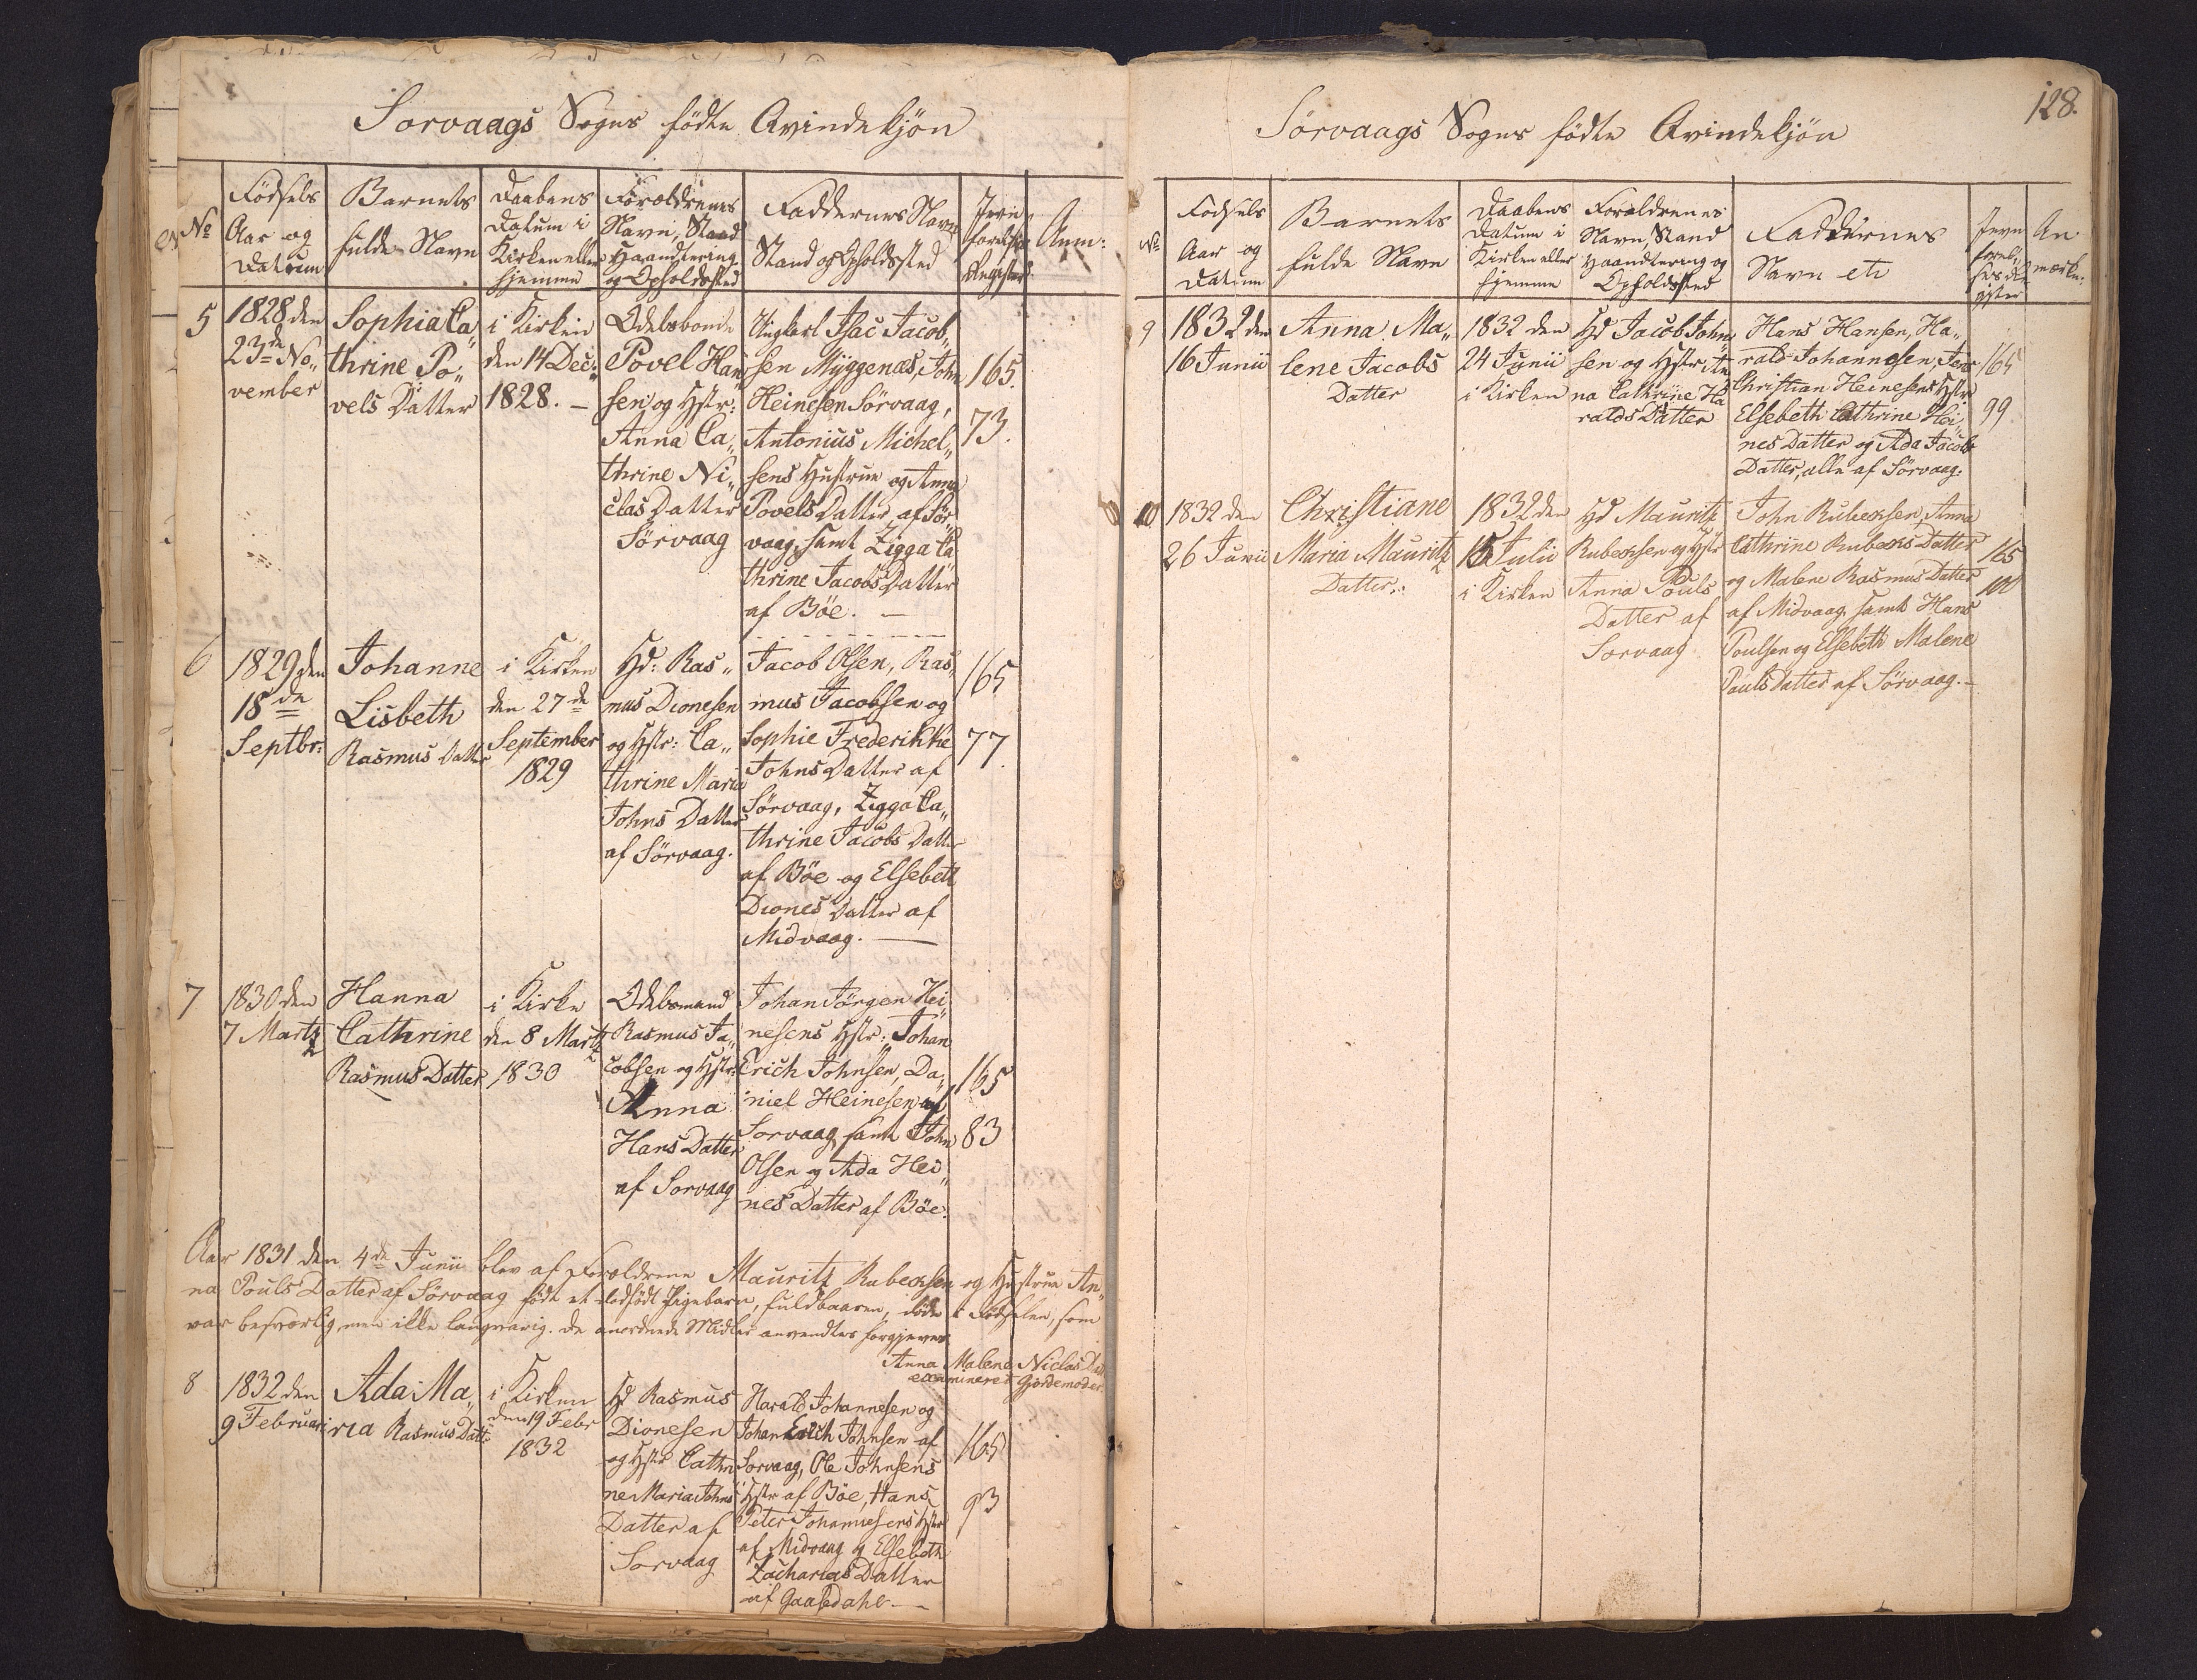 Sorvaags Sogns fødte Qvindekjøn
No
Fødsels
Aar og
Datum
Barnets
fulde Navn
Daabens
Datum i
Kirken eller
hjemme
Forældrenes
Navn, Stand
Haandtering
og Opholdssted
Faddernes Navn
Stand og Opholdssted
Jevn
førelses
Register
Anm:
5
1828 den
23de No„
vember
Sophia Ca„
thrine Po„
vels Datter
i Kirken
den 14 Dec:
1828. —
Odelsbonde
Povel Han„
sen og Hstr:
Anna Ca„
thrine Ni„
clas Datter
Sörvaag
Ungkarl Isac Jacob„
sen Myggenæs, John
Heinesen Sörvaag,
Antonius Michel„
sens Hustrue og Anna
Povels Datter af Sör„
vaag, samt Zigga Ca„
thrine Jacobs Datter
af Böe. —
165.
73.
6
1829 den
18de
Septbr:
Johanne
Lisbeth
Rasmus Datter
i Kirken
den 27de
September
1829
Hd: Ras„
mus Dionesen
og Hstr: Ca„
thrine Maria
Johns Datter
af Sörvaag.
Jacob Olsen, Ras„
mus Jacobsen og
Sophie Frederikke
Johns Datter af
Sörvaag, Zigga Ca„
thrine Jacobs Datter
af Böe og Elsebeth
Diones Datter af
Midvaag. —
165
77
7
1830 den
7 Martz
Hanna
Cathrine
Rasmus Datter
i Kirke
den 8 Martz
1830
Odelsmand
Rasmus Ja„
cobsen og Hstr:
Anna
Hans Datter
af Sorvaag
Johan Jörgen Hei„
nesens Hstr: Johan
Erich Johnsen, Da„
niel Heinesen af
Sorvaag samt John
Olsen og Ada Hei„
nes Datter af Böe.
165
83
Aar 1831 den 4de Junii blev af Forældrene Mauritz Rubeksen og Hustrue An„
na Pouls Datter af Sörvaag født et dødfødt Pigebarn, fuldbaaren, døde i Fødselen, som
var besværlig, men ikke langvarig. De anordnede Midler anvendtes forgjeves
Anna Malene Niclas Dat
examineret Gjordemoder.
8
1832 den
9 Februari
Ada Ma„
ria Rasmus Datt:
i Kirken
den 19 Febr
1832
Hd Rasmus
Dionesen
og Hstr Cathri
ne Maria Johns
Datter af
Sorvaag
Harald Johannesen og
Johan Erich Johnsen af
Sorvaag, Ole Johnsens
Hstr af Böe, Hans
Peter Johannesens Hstr
af Midvaag og Elsebeth
Zacharias Datter
af Gaasedahl. —
165
93
128.
Sörvaags Sogns fødte Qvindekjön
No
Fødsels
Aar og
Datum
Barnets
fulde Navn
Daabens
Datum i
Kirken eller
hjemme
Forældrenes
Navn, Stand
Haandtering og
Opholdssted
Faddernes
Navn etc
Jevn
førel„
ses Re
gister
An
mærkn:
9
1832 den
16 Junii
Anna Ma„
lene Jacobs
Datter
1832 den
24 Junii
i Kirken
Hd Jacob John„
sen og Hstr An
na Cathrine Ha
ralds Datter
Hans Hansen, Ha„
rald Johannesen, Jens
Christian Heinesens Hstr
Elsebeth Cathrine Hei„
nes Datter og Ada Jacobs
Datter, alle af Sörvaag.
165
99
10
1832 den
26 Junii
Christiane
Maria Mauritz
Datter.
1832 den
15 Julii
i Kirken
Hd Mauritz
Rubeksen og Hstr
Anna Pouls
Datter af
Sorvaag
John Rubeksen, Anna
Cathrine Rubeks Datter
og Malene Rasmus Datter
af Midvaag samt Hans
Poulsen og Elsebeth Malene
Pouls Datter af Sörvaag. —
165
100